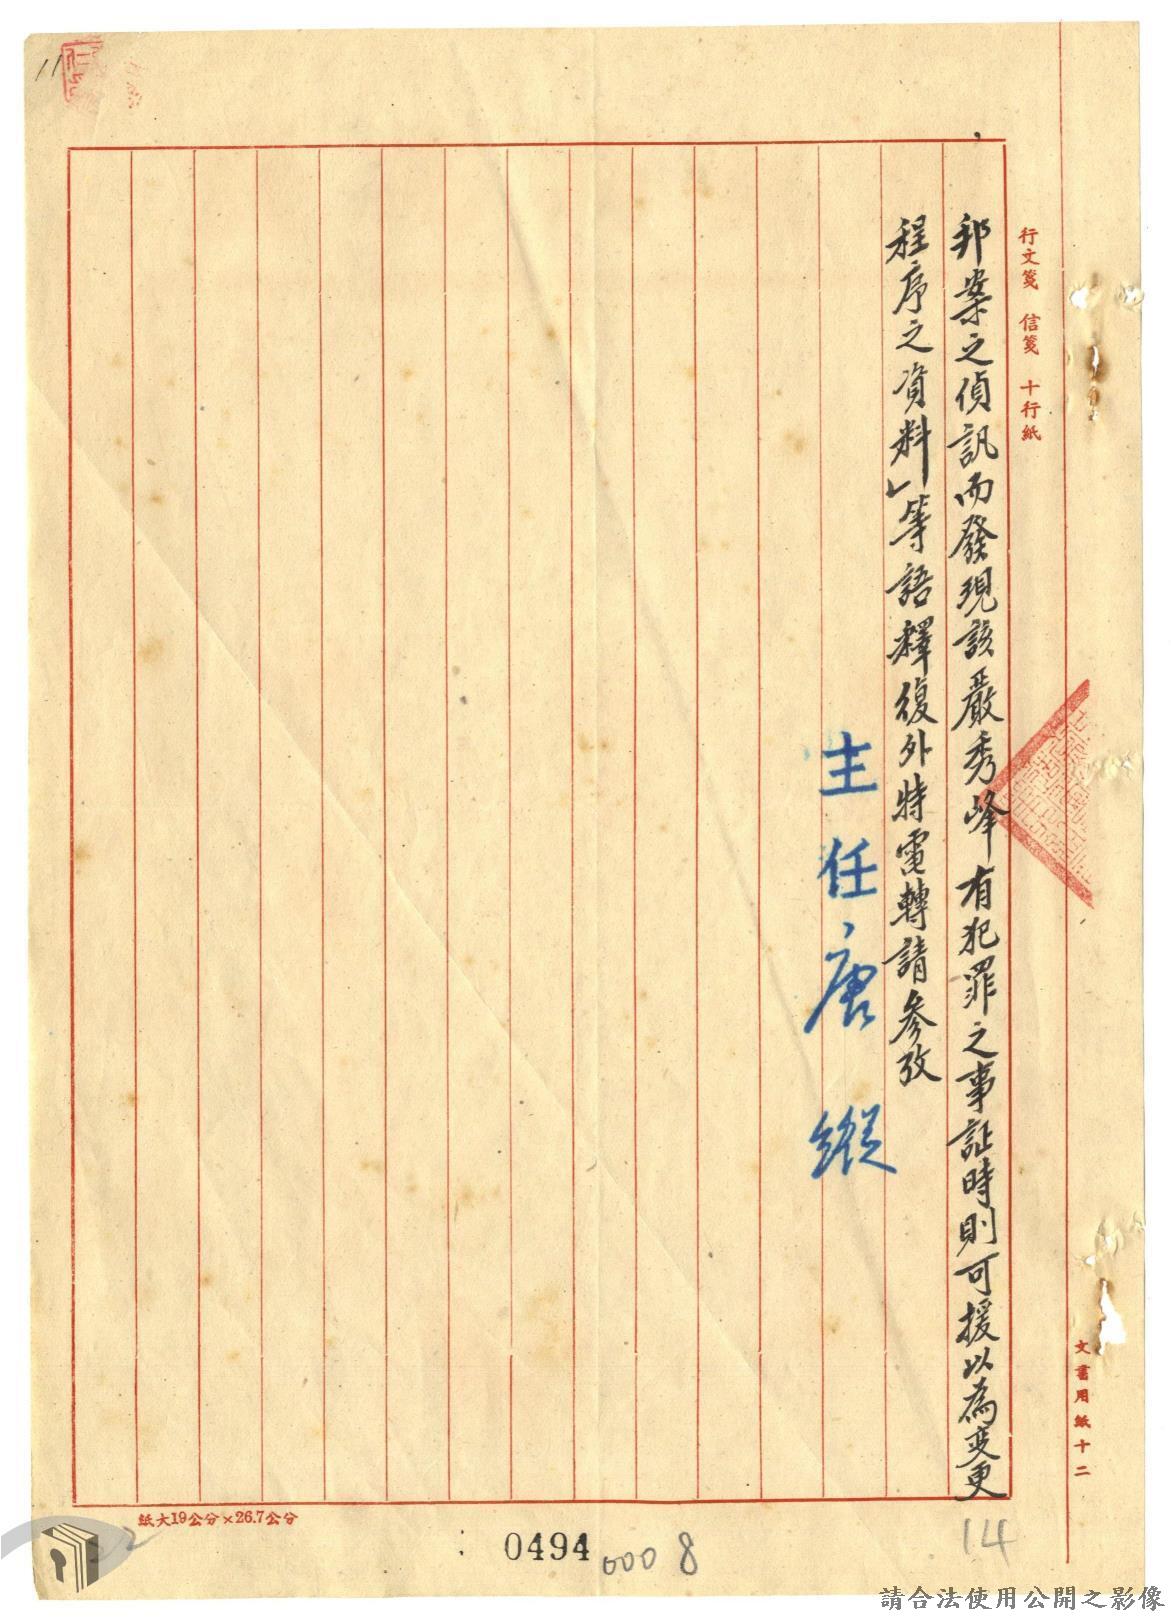 行文箋　信箋　十行紙
文書用紙十二
邦案之偵訊而發現該嚴秀峰有犯罪之事証時則可援以為變更
程序之資料」等語釋復外特電轉請參攷
主任唐縱
紙大19公分×26.7公分
0494
0008
14
11
22
請合法使用公開之影像